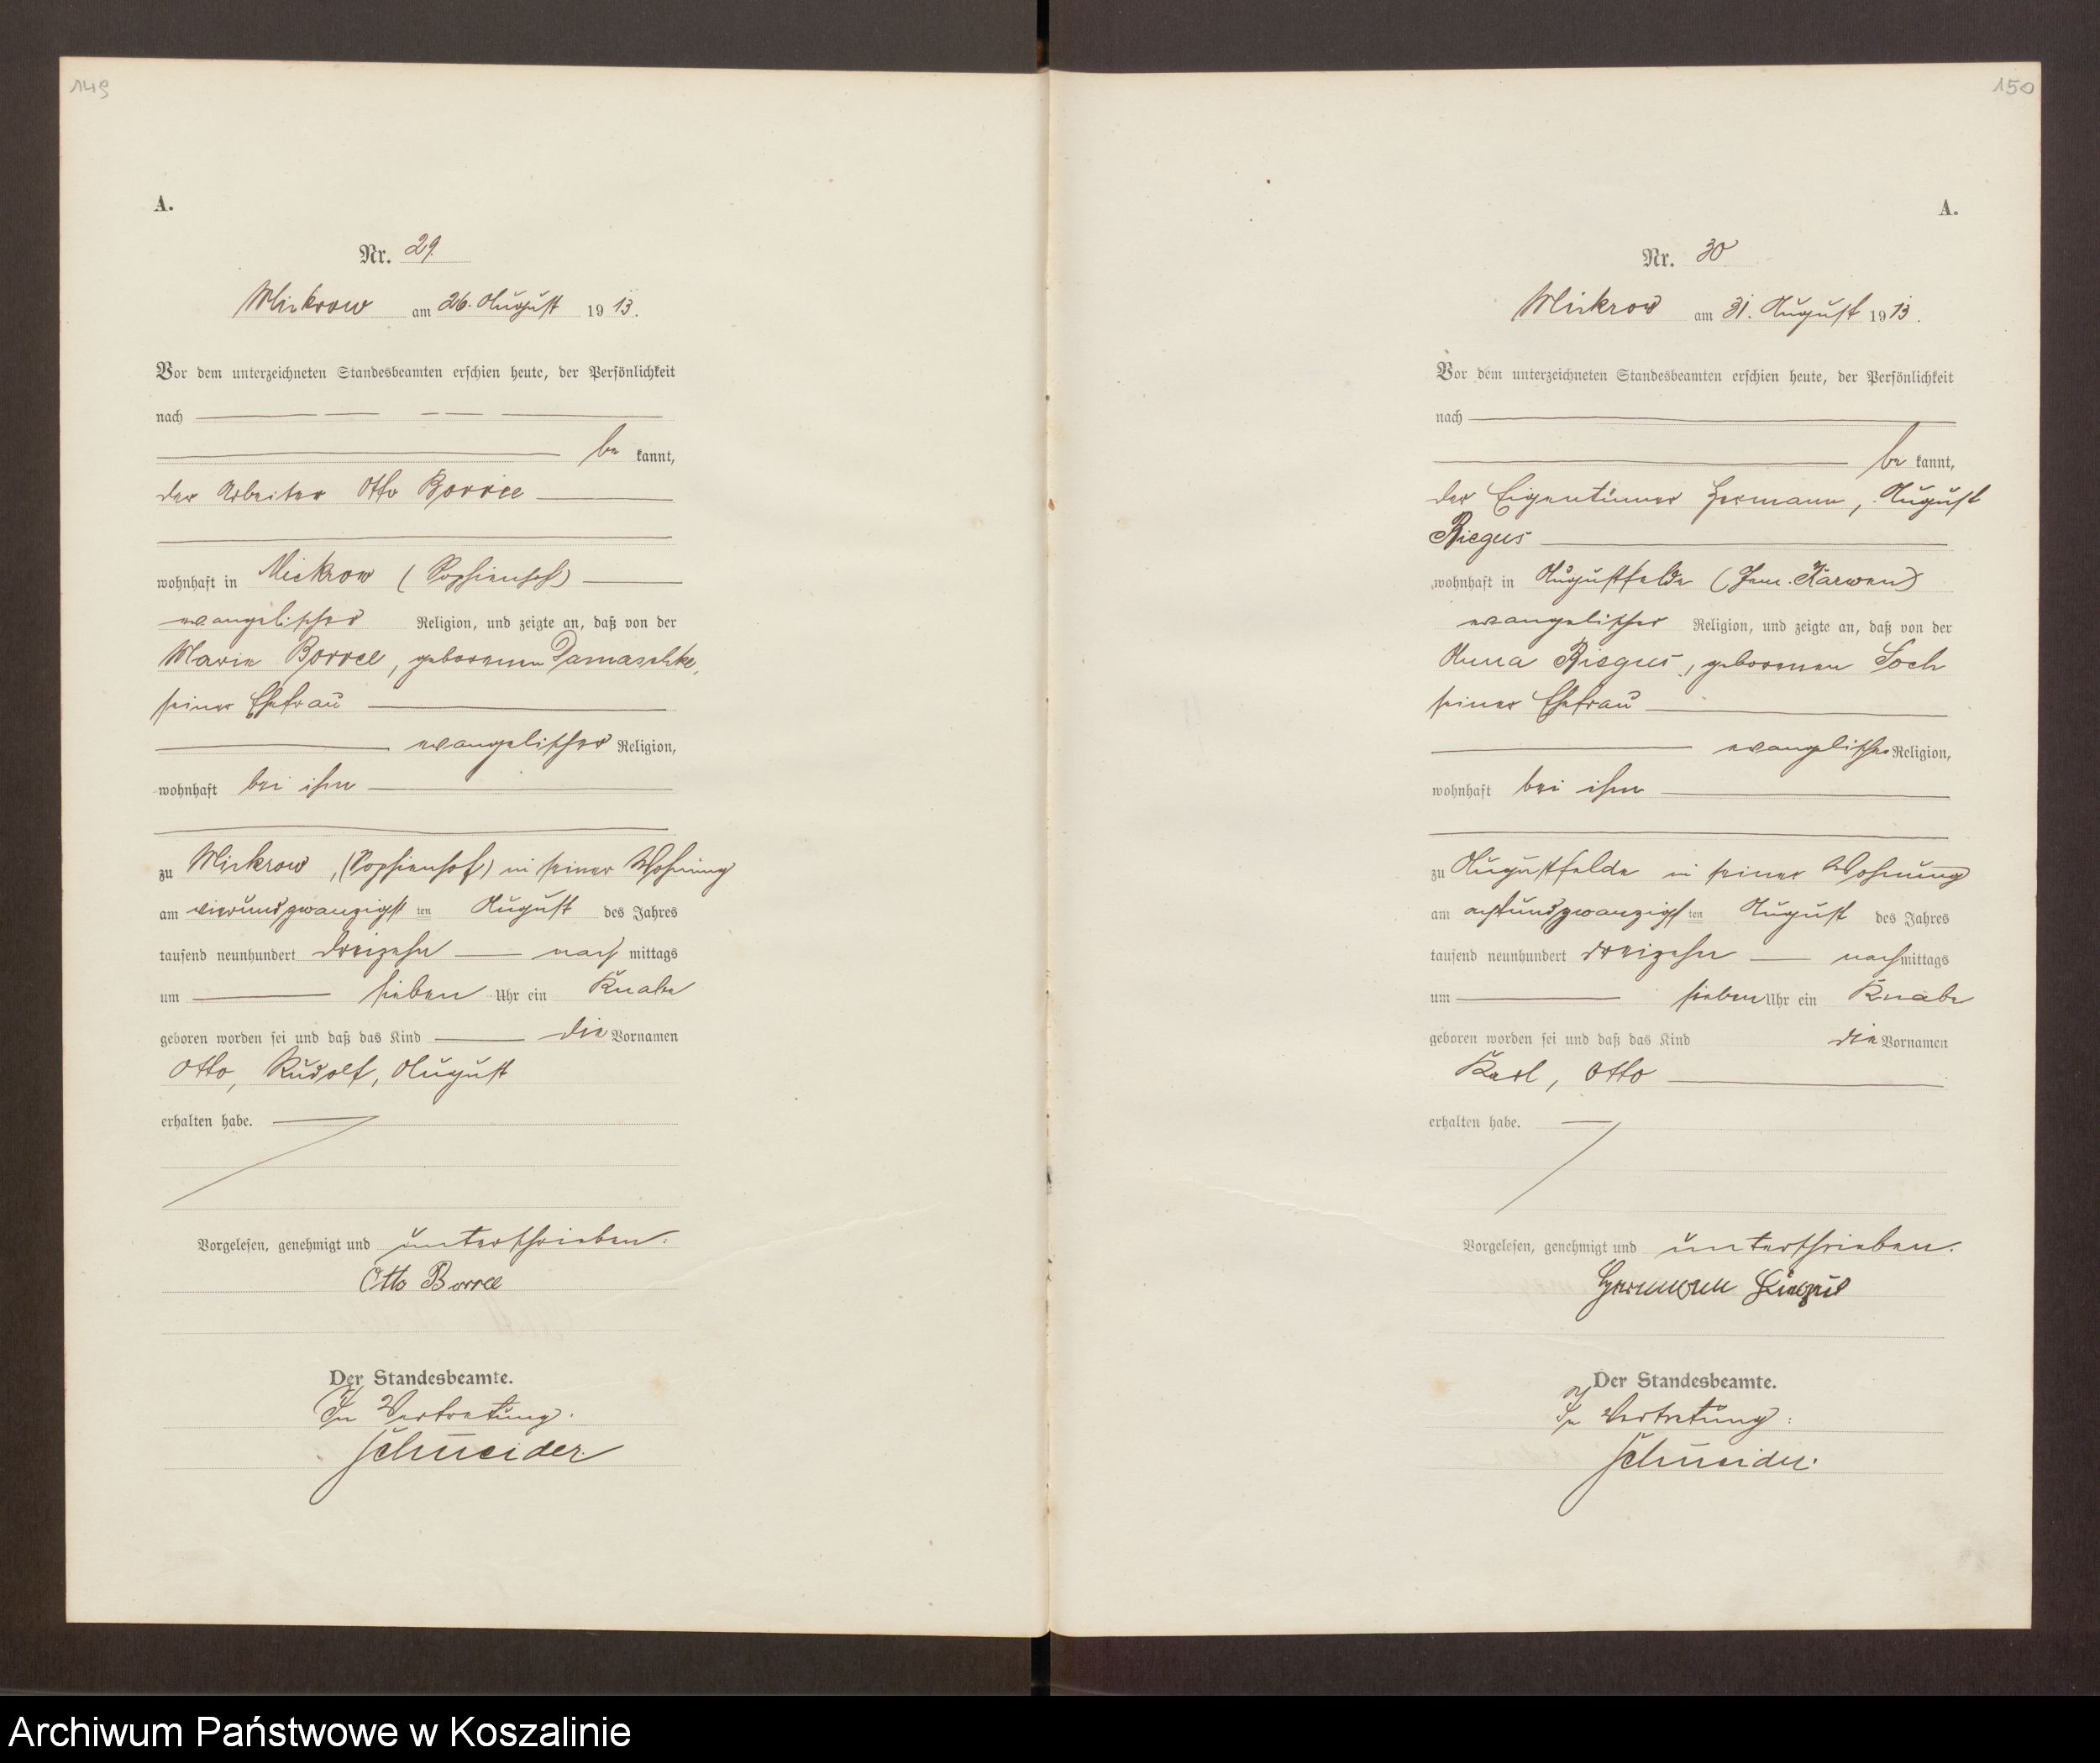 149
A.
Nr. 29.
Mickrow am 26. August 1913.
Vor dem unterzeichneten Standesbeamten erschien heute, der Persönlichkeit
nach
be kannt,
der Arbeiter Otto Borree
wohnhaft in Mickrow (Sophienhof)
evangelischer Religion, und zeigte an, daß von der
Marie Borree, geborenen Damaschke,
seiner Ehefrau
evangelischer Religion,
wohnhaft bei ihm
zu Mickrow, (Sophienhof) in seiner Wohnung
am vierundzwanzigst ten August des Jahres
tausend neunhundert dreizehn nach mittags
um sieben Uhr ein Knabe
geboren worden sei und daß das Kind die Vornamen
Otto, Rudolf, August
erhalten habe.
Vorgelesen, genehmigt und unterschrieben.
Otto Borree
Der Standesbeamte.
In Vertretung.
Schneider.
150
A.
Nr. 30
Mickrow am 31. August 1913.
Vor dem unterzeichneten Standesbeamten erschien heute, der Persönlichkeit
nach
be kannt,
der Eigentümer Hermann, August
wohnhaft in Augustfelde (Gem. Karwen)
evangelischer Religion, und zeigte an, daß von der
Anna, geborenen
seiner Ehefrau
evangelischer Religion,
wohnhaft bei ihm
zu Augustfelde in seiner Wohnung
am achtundzwanzigst ten August des Jahres
tausend neunhundert dreizehn nachmittags
um sieben Uhr ein Knabe
geboren worden sei und daß das Kind die Vornamen
Karl, Otto
erhalten habe.
Vorgelesen, genehmigt und unterschrieben.
Hermann
Der Standesbeamte.
In Vertretung:
Schneider.
Archiwum Państwowe w Koszalinie